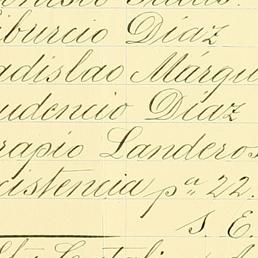 iburcio Díaz
adislao Márqu
udencio Díaz
rapio Landeros
cistencia pª 22.
S. E.